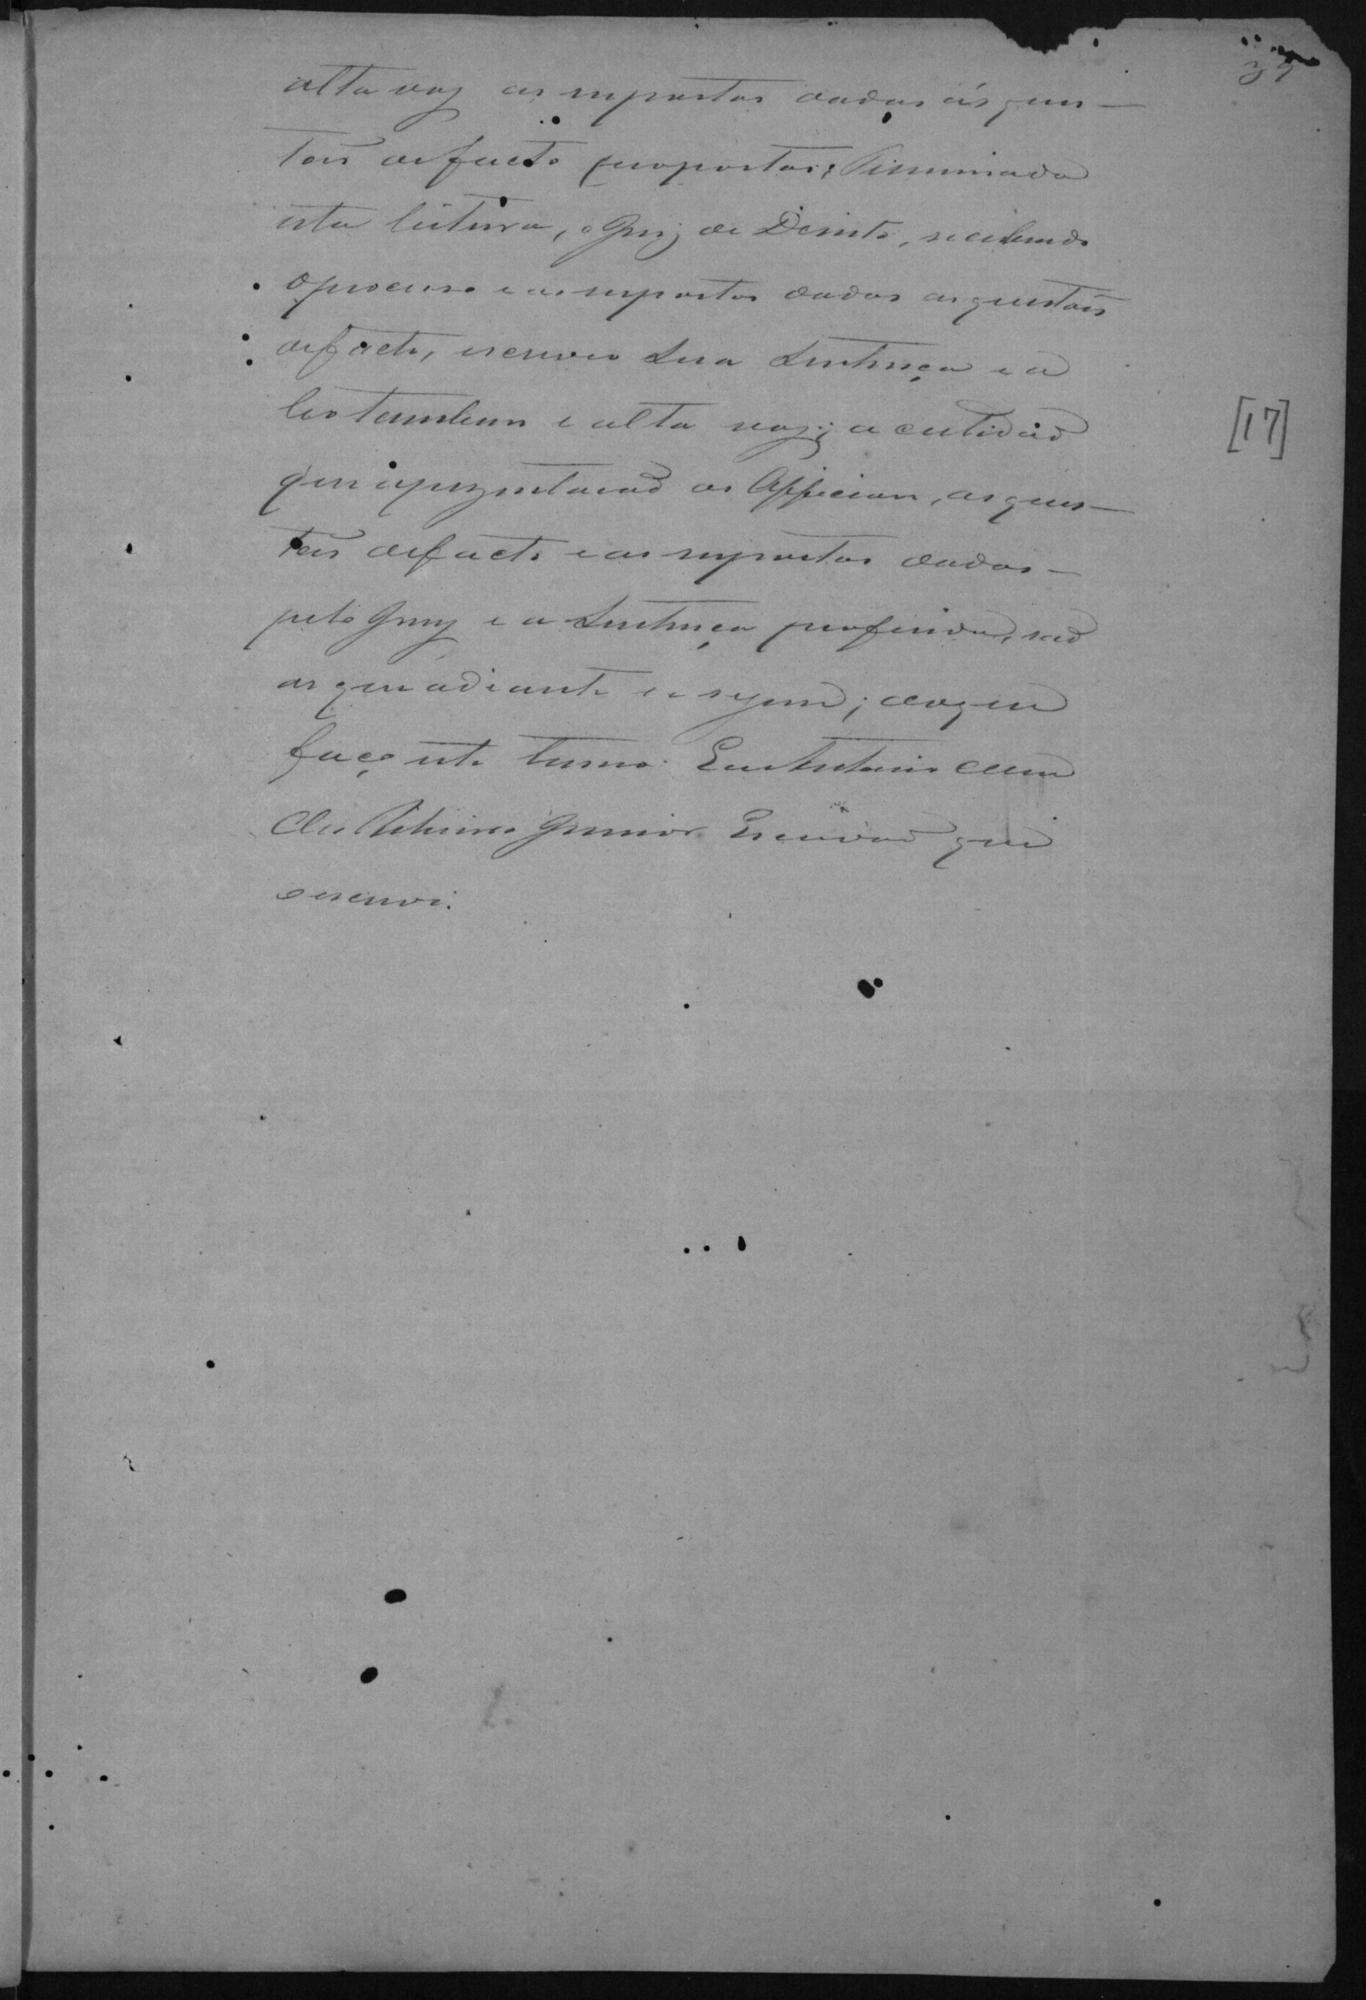 37
alta voz as respostas dadas ás ques-
toes de facto propostas; Terminada
esta leitura, o Juiz de Direito, recebendo
o processo e as respostas dadas as questoes
de facto, escreveo sua Sentença e a
leo tambem e alta voz; a certidaõ
que aprezentaraõ os Officiaes, as ques-
toes de facto e as respostas dadas
pelo Jury e a Sentença proferida, saõ
as que adiante se segue; do que
faço este termo. Eu Antonio
Junior Escrivaõ que
o escrevi.
[17]